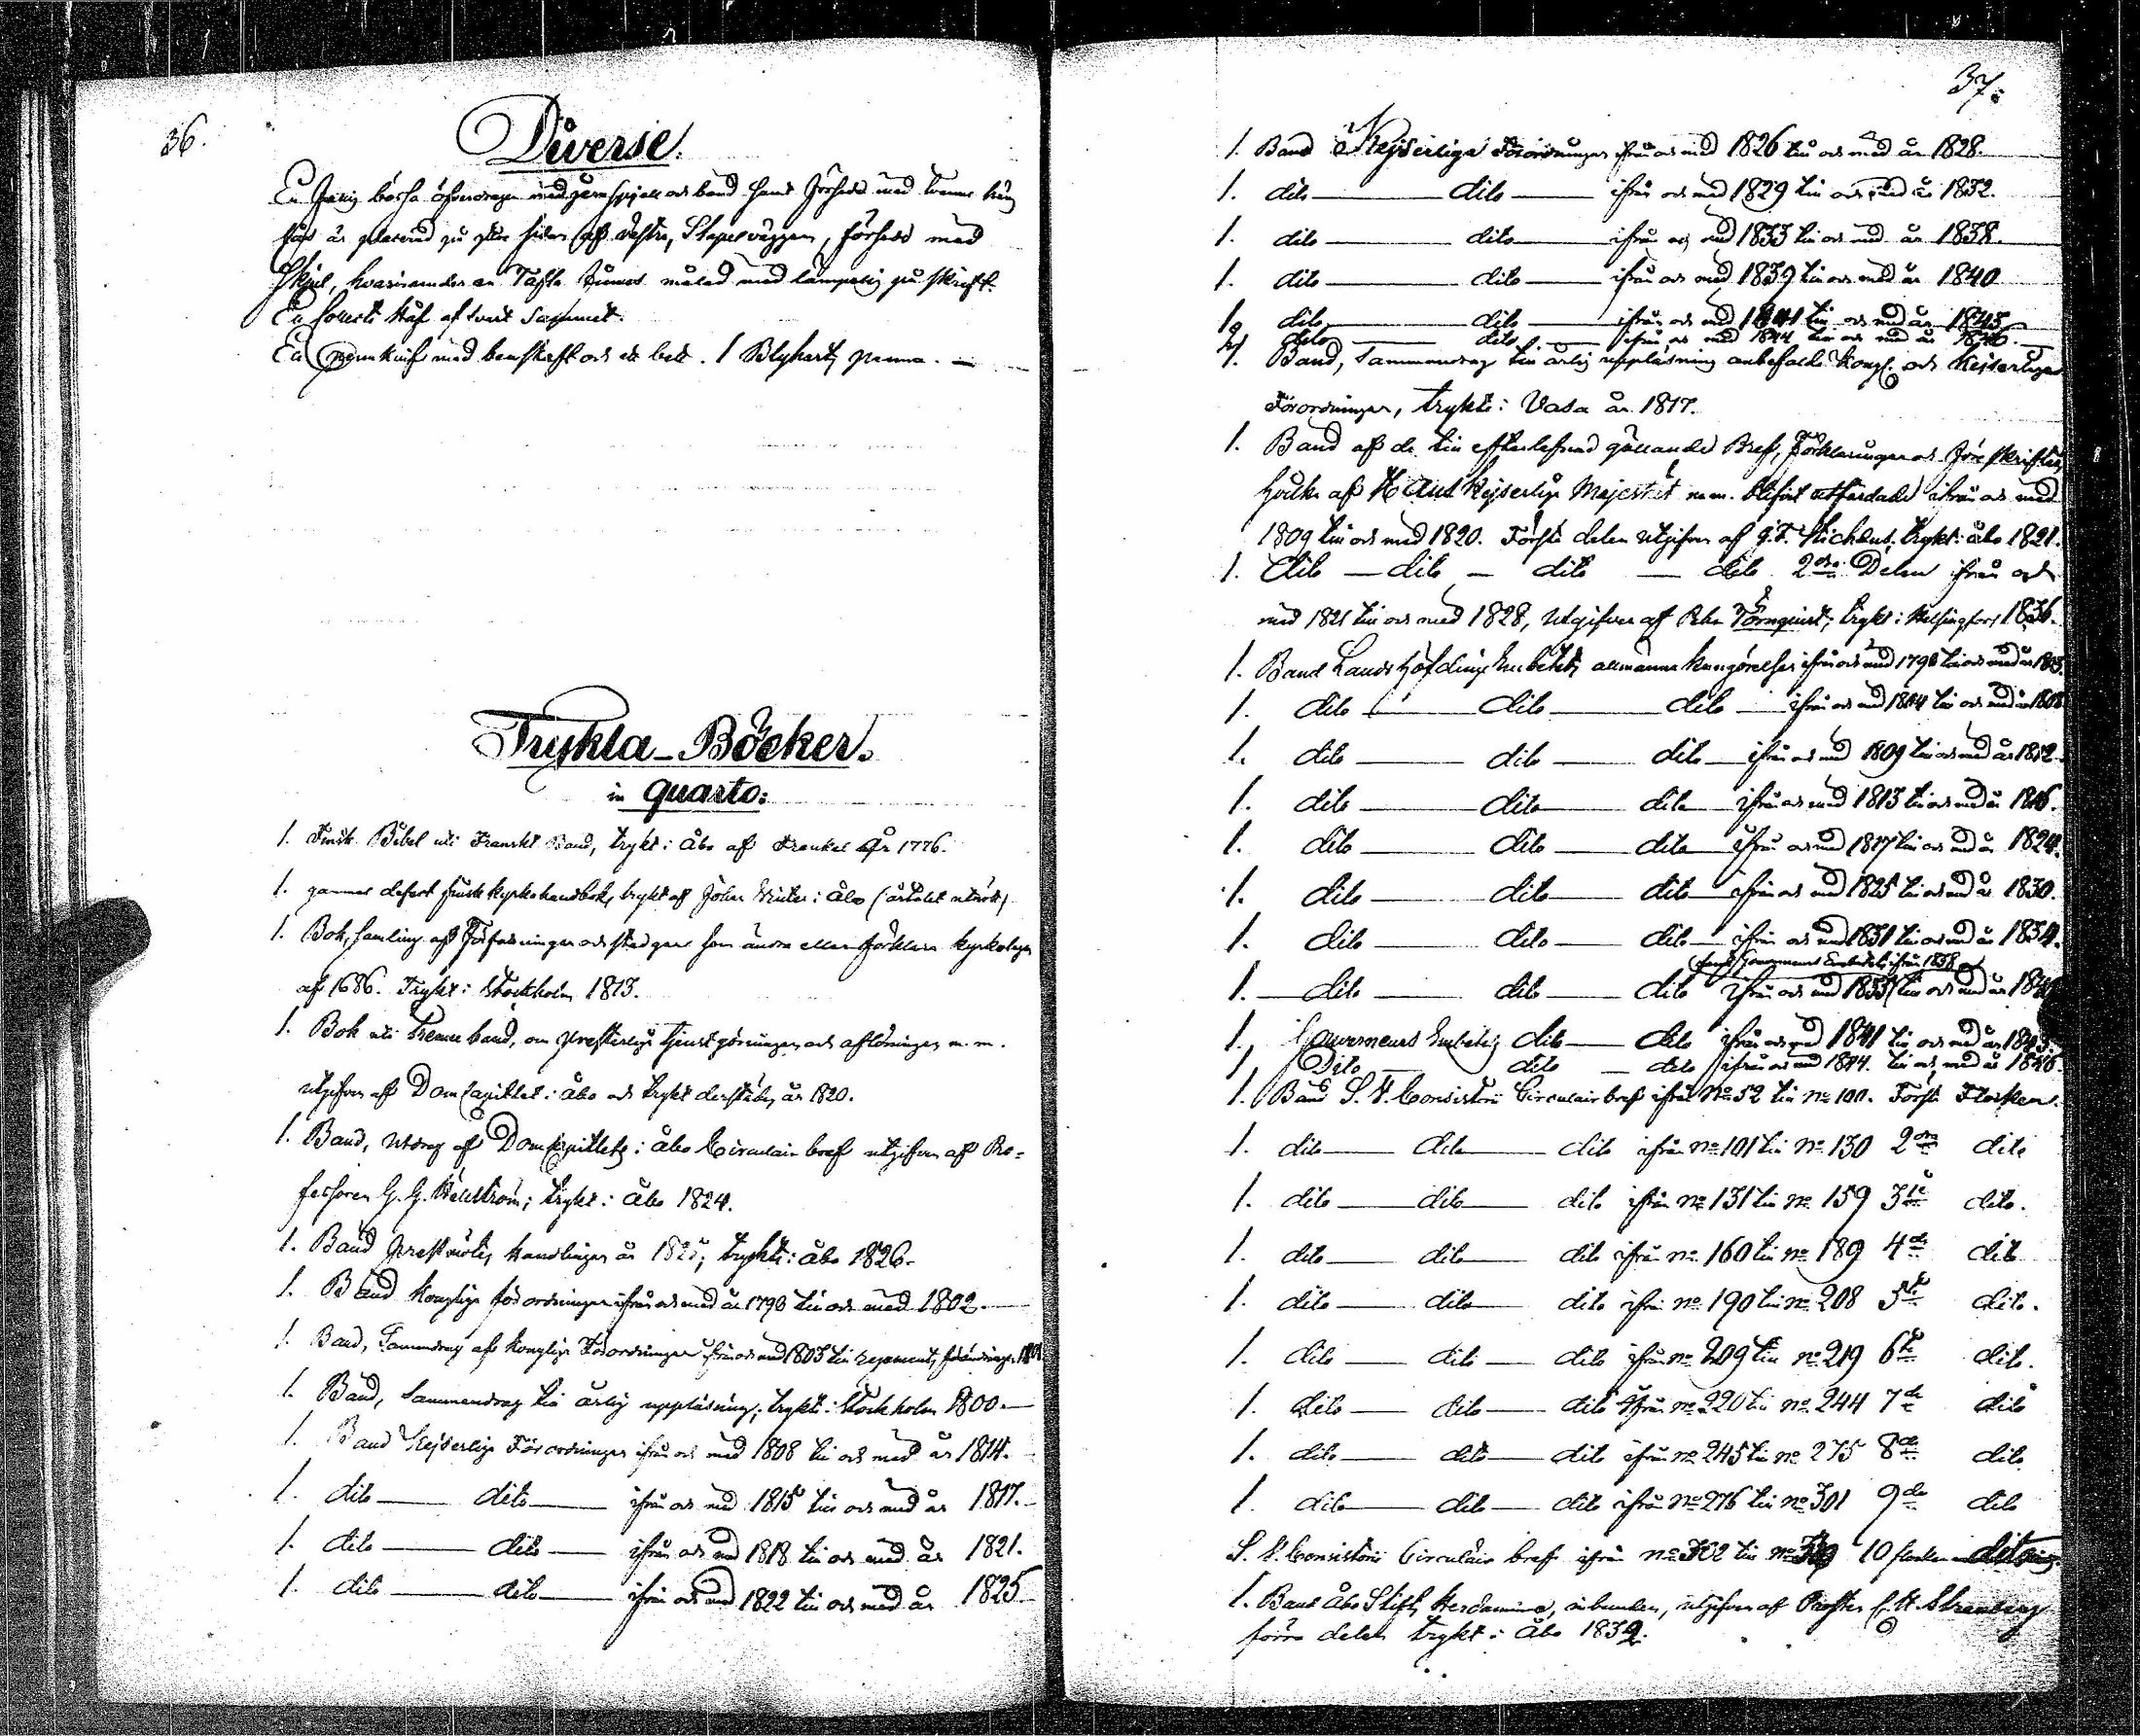 36.
Diverse.
En bössa öfverdragen med jernspjell och band samt försedd med tvenne
är placerad på af västra Stapelväggen, försedd med
Skjul, hvarunder en Tafla finnes målad med lämpelig påskrift.
En Collecte håf af svart Sammet.
En pennknif med benskaft och ett bett. 1 Blyhartz penna. —
Tryckta Böcker.
in quarto:
1. Finsk Bibel uti Franskt Band, trykt i Åbo af Frenkel År 1776.
1. gammal defect finsk kyrkohandbok, trykt af Johan Winter i Åbo (årtalet utnött)
1. Bok, samling af Författningar och stadgar som ändra eller förklara kyrkolagen
af 1686. Trykt i Stockholm 1813.
1. Bok uti Tvenne band, om presterliga tjenstgörningar och aflöningar m. m.
utgifven af DomCapitlet i Åbo och trykt derstädes år 1820.
1. Band, utdrag af DomCapitlets i Åbo Circulair bref utgifven af Pro-
fessoren G. G. Hällström; trykt i Åbo 1824.
1. Band Prestmötes Handlingar år 1825; tryckte i Åbo 1826.
1. Band Kongliga förordningar ifrån och med år 1790 till och med 1802. —
1. Band, Sammandrag af Kongliga Förordningar ifrån och med 1803 till regements förändringen
1. Band, Sammandrag till årlig uppläsning; trykt i Stockholm 1800. —
1. Band Kejserliga Förordningar ifrån och med 1808 till och med år 1814.
1. dito — dito — ifrån och med 1815 till och med år 1817.
1. dito — dito — ifrån och med 1818 till och med år 1821.
1. dito — dito — ifrån och med 1822 till och med år 1825.
37.
1. Band Kejserliga Förordningar ifrån och med 1826 till och med år 1828.
1. dito — dito — ifrån och med 1829 till och med år 1832.
1. dito — dito — ifrån och med 1833 till och med år 1838.
1. dito — dito — ifrån och med 1839 till och med år 1840
1. dito — dito — ifrån och med 1841 till och med år 1843
dito — dito — ifrån och med 1844 till och med år 1846.
1. Band, Sammandrag till årlig uppläsning anbefalde Kongl. och Kejserliga
Förordningar, trykte i Vasa år 1817.
1. Band af de till efterlefnad gällande Bref, Förklaringar och Föreskrifter,
hvilka af Hans Kejserliga Majestät m.m. blifvit utfärdade ifrån och med
1809 till och med 1820. Första delen utgifven af trykt i Åbo 1821.
1. Dito — dito — dito — dito 2dra Delen ifrån och
med 1821 till och med 1828, utgifven af Törnquist; trykt i Helsingfors 1836.
1. Band Landshöfdinge Embetets allmänna kungörelser ifrån och med 1790 till och med år 1803.
1. dito — dito — dito — ifrån och med 1804 till och med år 1808
1. dito — dito — dito — ifrån och med 1809 till och med år 1812.
1. dito — dito — dito — ifrån och med 1813 till och med år 1816.
1. dito — dito — dito — ifrån och med 1817 till och med år 1824.
1. dito — dito — dito — ifrån och med 1825 till och med år 1830.
1. dito — dito — dito — ifrån och med 1831 till och med år 1834.
(samt Gouverneurs Embetets ifrån 1838
1. — dito — dito — dito ifrån och med 1835 till och med år
1. Gouverneurs Embetets dito — dito ifrån och med 1841 till och med år 1843.
1 Dito — dito — dito ifrån och med 1844. till och med år 1846.
1. Band S. V. Consistorii Circulair bref ifrån No 52 till No 100. Första Flocken.
1. dito — dito — dito ifrån No 101 till No 130 2dra dito
1. dito — dito — dito ifrån No 131 till No 159 3de dito.
1. dito — dito — dito ifrån No 160 till No 189 4de dito
1. dito — dito — dito ifrån No 190 till No 208 5te dito.
1. dito — dito — dito ifrån No 209 till No 219 6te dito.
1. dito — dito — dito ifrån No 220 till No 244 7de dito
1. dito — dito — dito ifrån No 245 till No 275 8de dito
1. dito — dito — dito ifrån No 276 till No 301 9de dito
S. V. Consistorii Circulair bref ifrån No 302 till No 10 flocken
1. Band Åbo Stifts Herdaminne, inbunden, utgifven af Prosten C. H. Strandberg
förra delen trykt i Åbo 1832.